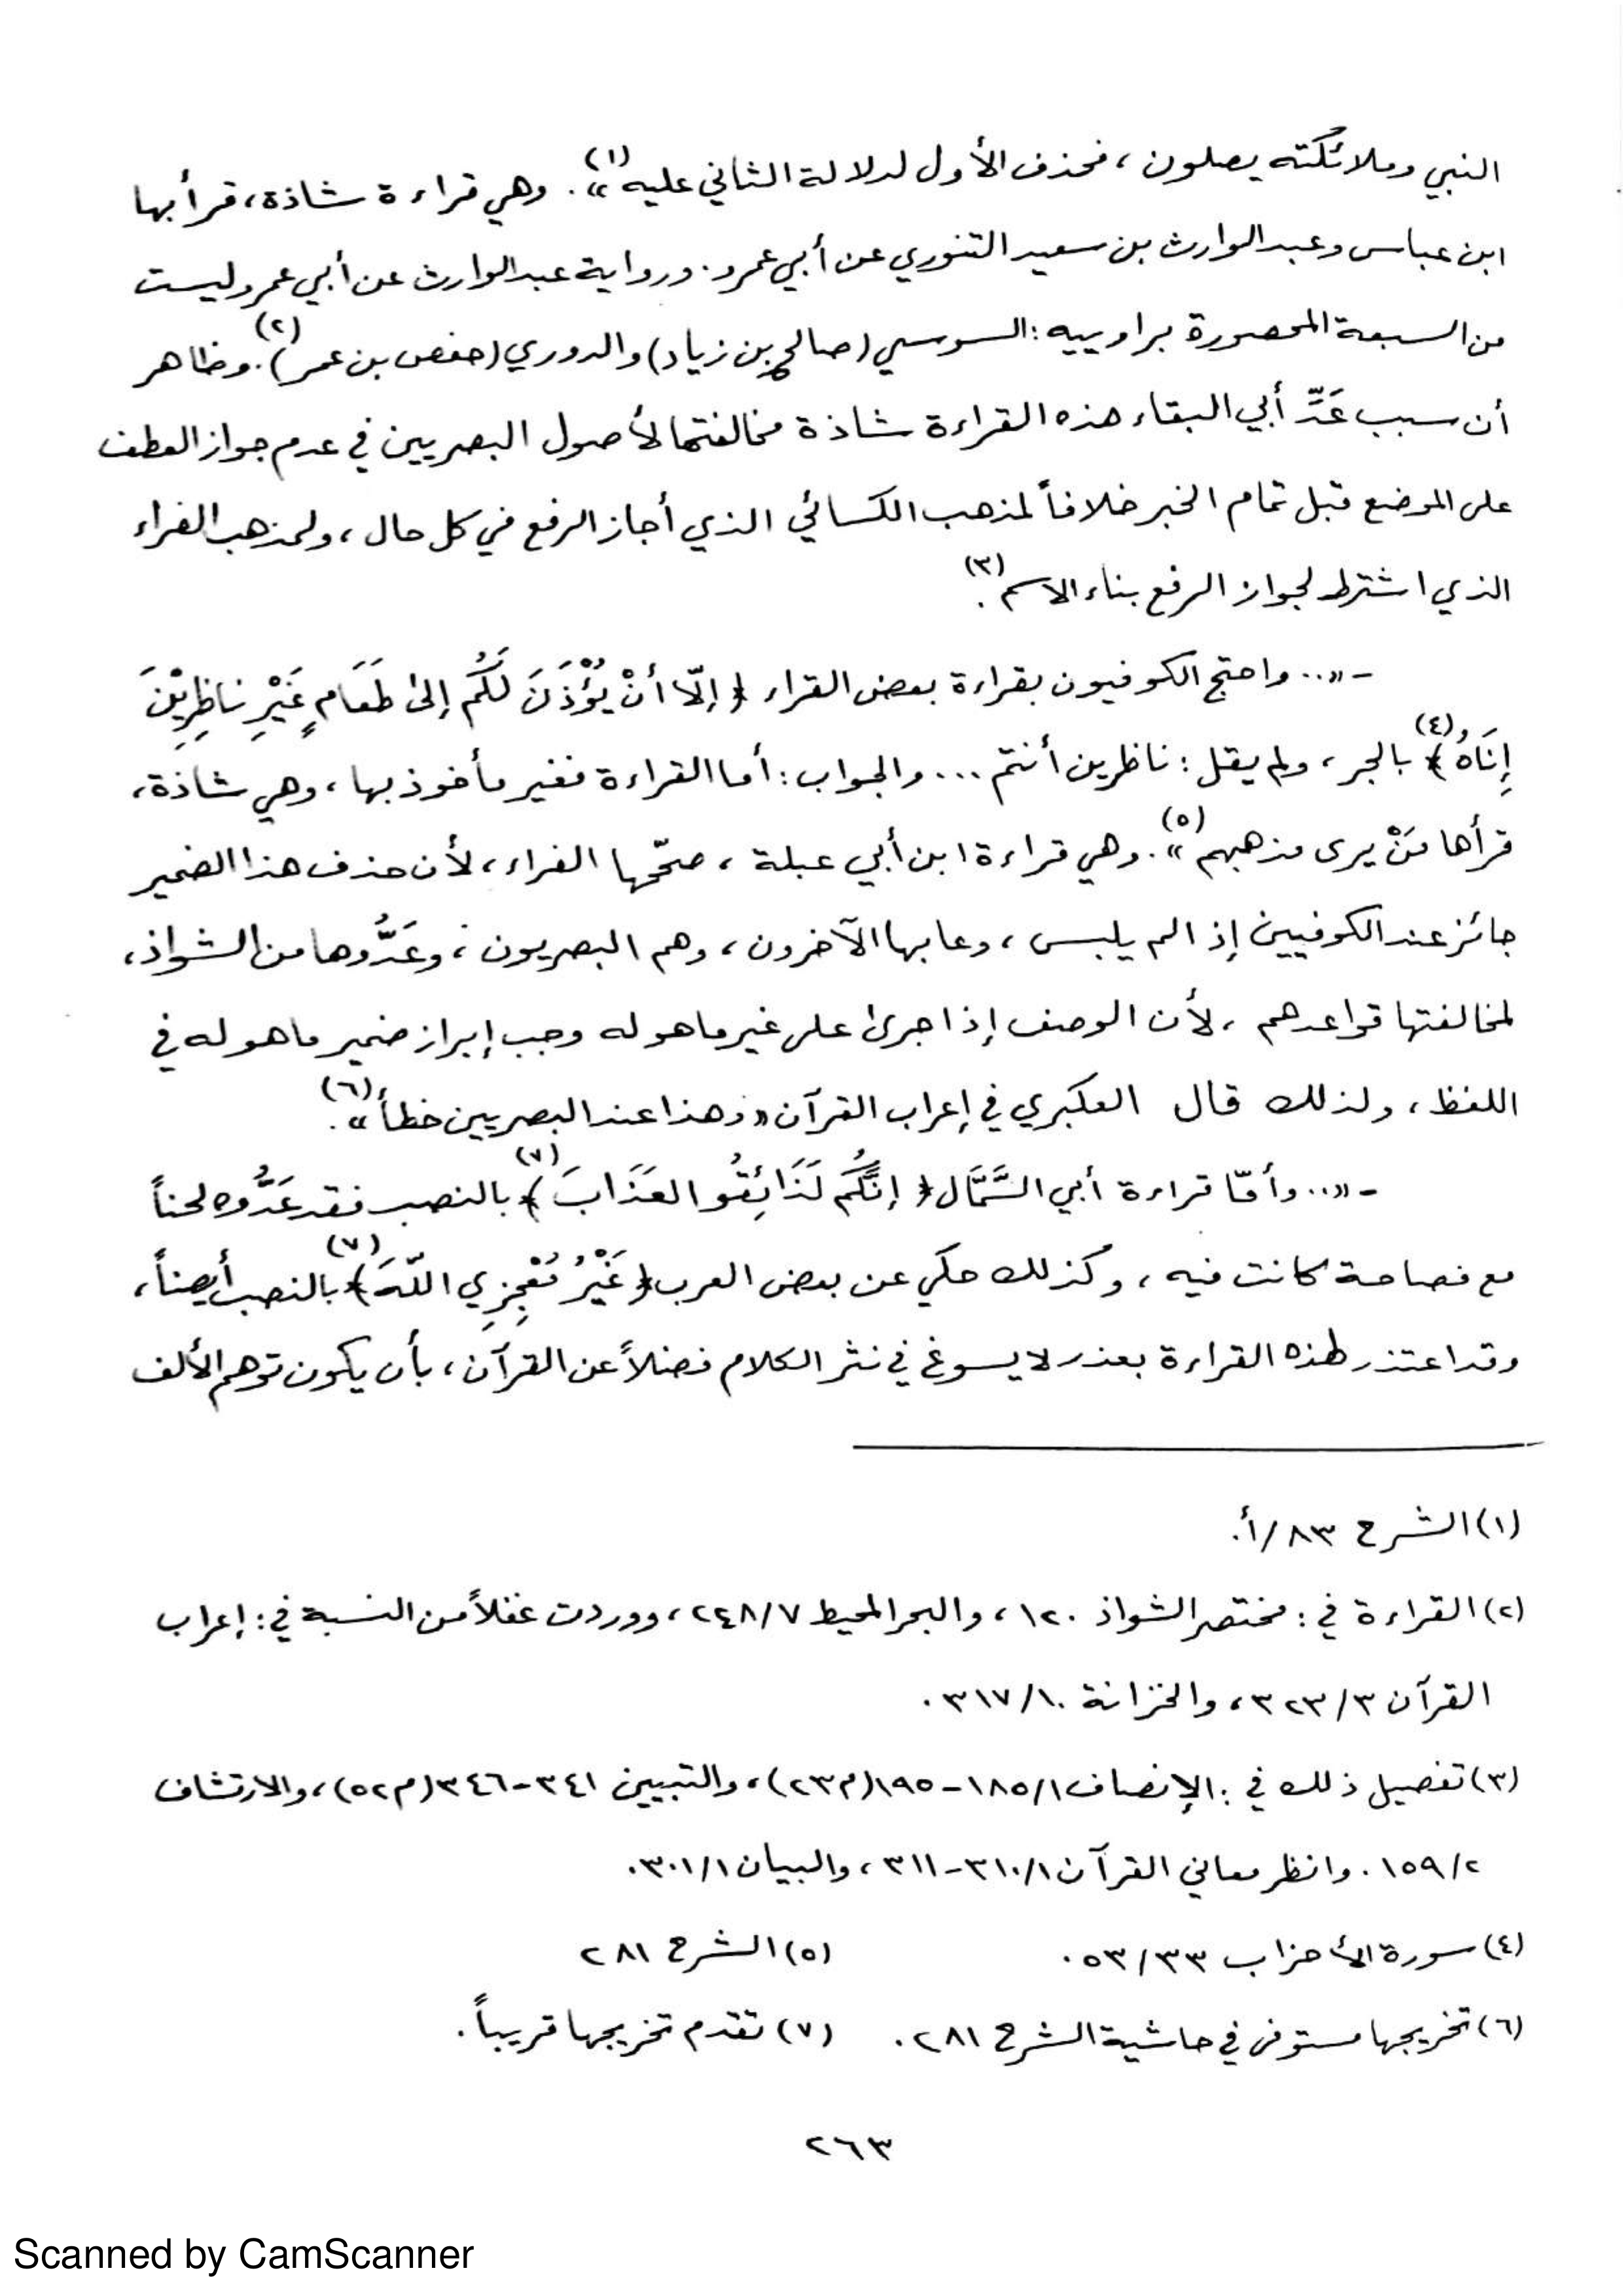 النبي وملائكته يصلون، فحذف الأول لدلالة الثاني عليه»(١). وهي قراءة شاذة، قرأ بها
ابن عباس وعبد الوارث بن سعيد التنوري عن أبي عمرو. ورواية عبد الوارث عن أبي عمرو ليست
من السبعة المحصورة براوييه: السوسي (صالح بن زياد) والدوري (حفص بن عمر)(٢). وظاهر
أن سبب عَدِّ أبي البقاء هذه القراءة شاذة مخالفتها لأصول البصريين في عدم جواز العطف
على الموضع قبل تمام الخبر خلافاً لمذهب الكسائي الذي أجاز الرفع في كل حال، ولمذهب الفراء
الذي اشترط لجواز الرفع بناء الاسم(٣).
- «.. واحتج الكوفيون بقراءة بعض القراء ﴿إلّا أنْ يُؤْذَنَ لَكُم إلىٰ طَعَامٍ غَيْرِ ناظِرِيْنَ
إِنَاهُ﴾(٤) بالجر، ولم يقل: ناظرين أنتم ... والجواب: أما القراءة فغير مأخوذ بها، وهي شاذة،
قرأها مَنْ يرى مذهبهم»(٥). وهي قراءة ابن أبي عبلة، صحّحها الفراء، لأن حذف هذا الضمير
جائز عند الكوفيين إذا لم يلبس، وعابها الآخرون، وهم البصريون، وعَدُّوها من الشواذ،
لمخالفتها قواعدهم، لأن الوصف إذا جرىٰ على غير ما هو له وجب إبراز ضمير ما هو له في
اللفظ، ولذلك قال العكبري في إعراب القرآن «وهذا عند البصريين خطأ»(٦).
- «.. وأمّا قراءة أبي السَّمَّال ﴿إنَّكُم لَذَائِقُو العَذَابَ﴾(٧) بالنصب فقد عَدُّوه لحناً
مع فصاحة كانت فيه، وكذلك حكي عن بعض العرب ﴿غَيْرُ مُعْجِزِي اللّهَ﴾(٧) بالنصب أيضاً،
وقد اعتذر لهذه القراءة بعذر لا يسوغ في نثر الكلام فضلاً عن القرآن، بأن يكون توهم الألف
(١) الشرح ٨٣/أ.
(٢) القراءة في: مختصر الشواذ ١٢٠، والبحر المحيط ٢٤٨/٧، ووردت غفلاً من النسبة في: إعراب
القرآن ٣٢٣/٣، والخزانة ٣١٧/١٠.
(٣) تفصيل ذلك في: الإنصاف ١٨٥/١-١٩٥ (م٢٣)، والتبيين ٣٤١-٣٤٦ (م٥٢)، والارتشاف
١٥٩/٢. وانظر معاني القرآن ٣١٠/١-٣١١، والبيان ٣٠١/١.
(٤) سورة الأحزاب ٥٣/٣٣. (٥) الشرح ٢٨١
(٦) تخريجها مستوفى في حاشية الشرح ٢٨١. (٧) تقدم تخريجها قريباً.
٢٦٣
Scanned by CamScanner